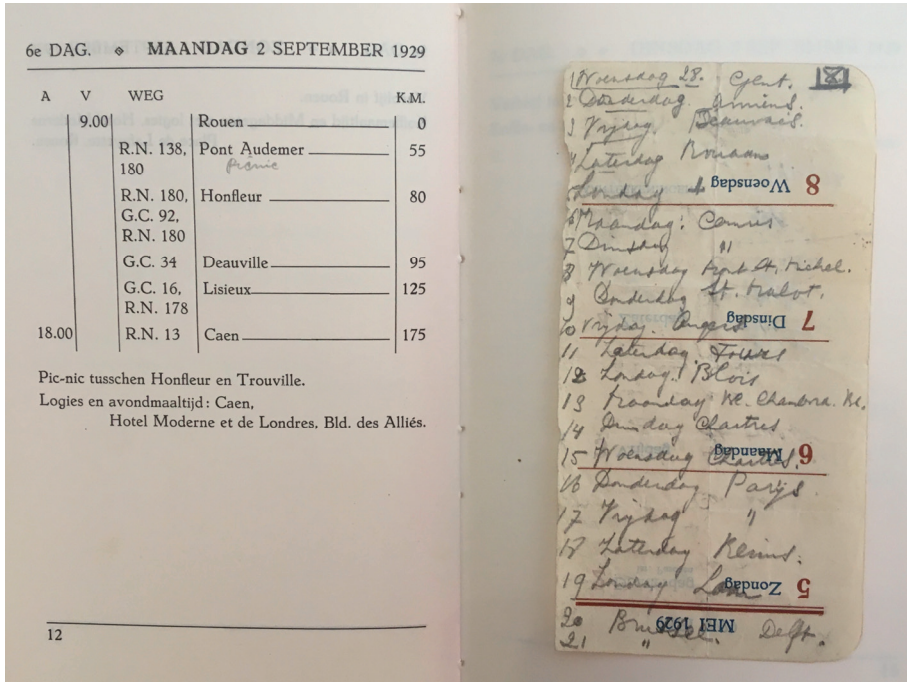 6e DAG. MAANDAG 2 SEPTEMBER 1929
A V WEG K.M.
9.00 Rouen 0
R.N. 138, Pont Audemer 55
180 Picnic
R.N. 180, Honfleur 80
G.C. 92,
R.N. 180
G.C. 34 Deauville 95
G.C. 16, Lisieux 125
R.N. 178
18.00 R.N. 13 Caen 175
Pic-nic tusschen Honfleur en Trouville.
Logies en avondmaaltijd: Caen,
Hotel Moderne et de Londres, Bld. des Alliés.
12
1 Woensdag 28. Gent. 18
2 Donderdag Amiens.
3 Vrijdag Beauvais.
4 Zaterdag Rouaan
5 Zondag "
8 Woensdag
6 Maandag. Cannes
7 Dinsdag "
8 Woensdag Mont St. Michel.
9 Donderdag St. Malot.
7 Dinsdag
10 Vrijdag. Angers
11 Zaterdag. Tours
12 Zondag. Blois
13 Maandag
14 Dinsdag Chartres
6 Maandag
15 Woensdag Chartres.
16 Donderdag Parijs.
17 Vrijdag "
18 Zaterdag Reims.
5 Zondag
19 Zondag Laon
MEI 1929
20 Brussel. Delft.
21 "